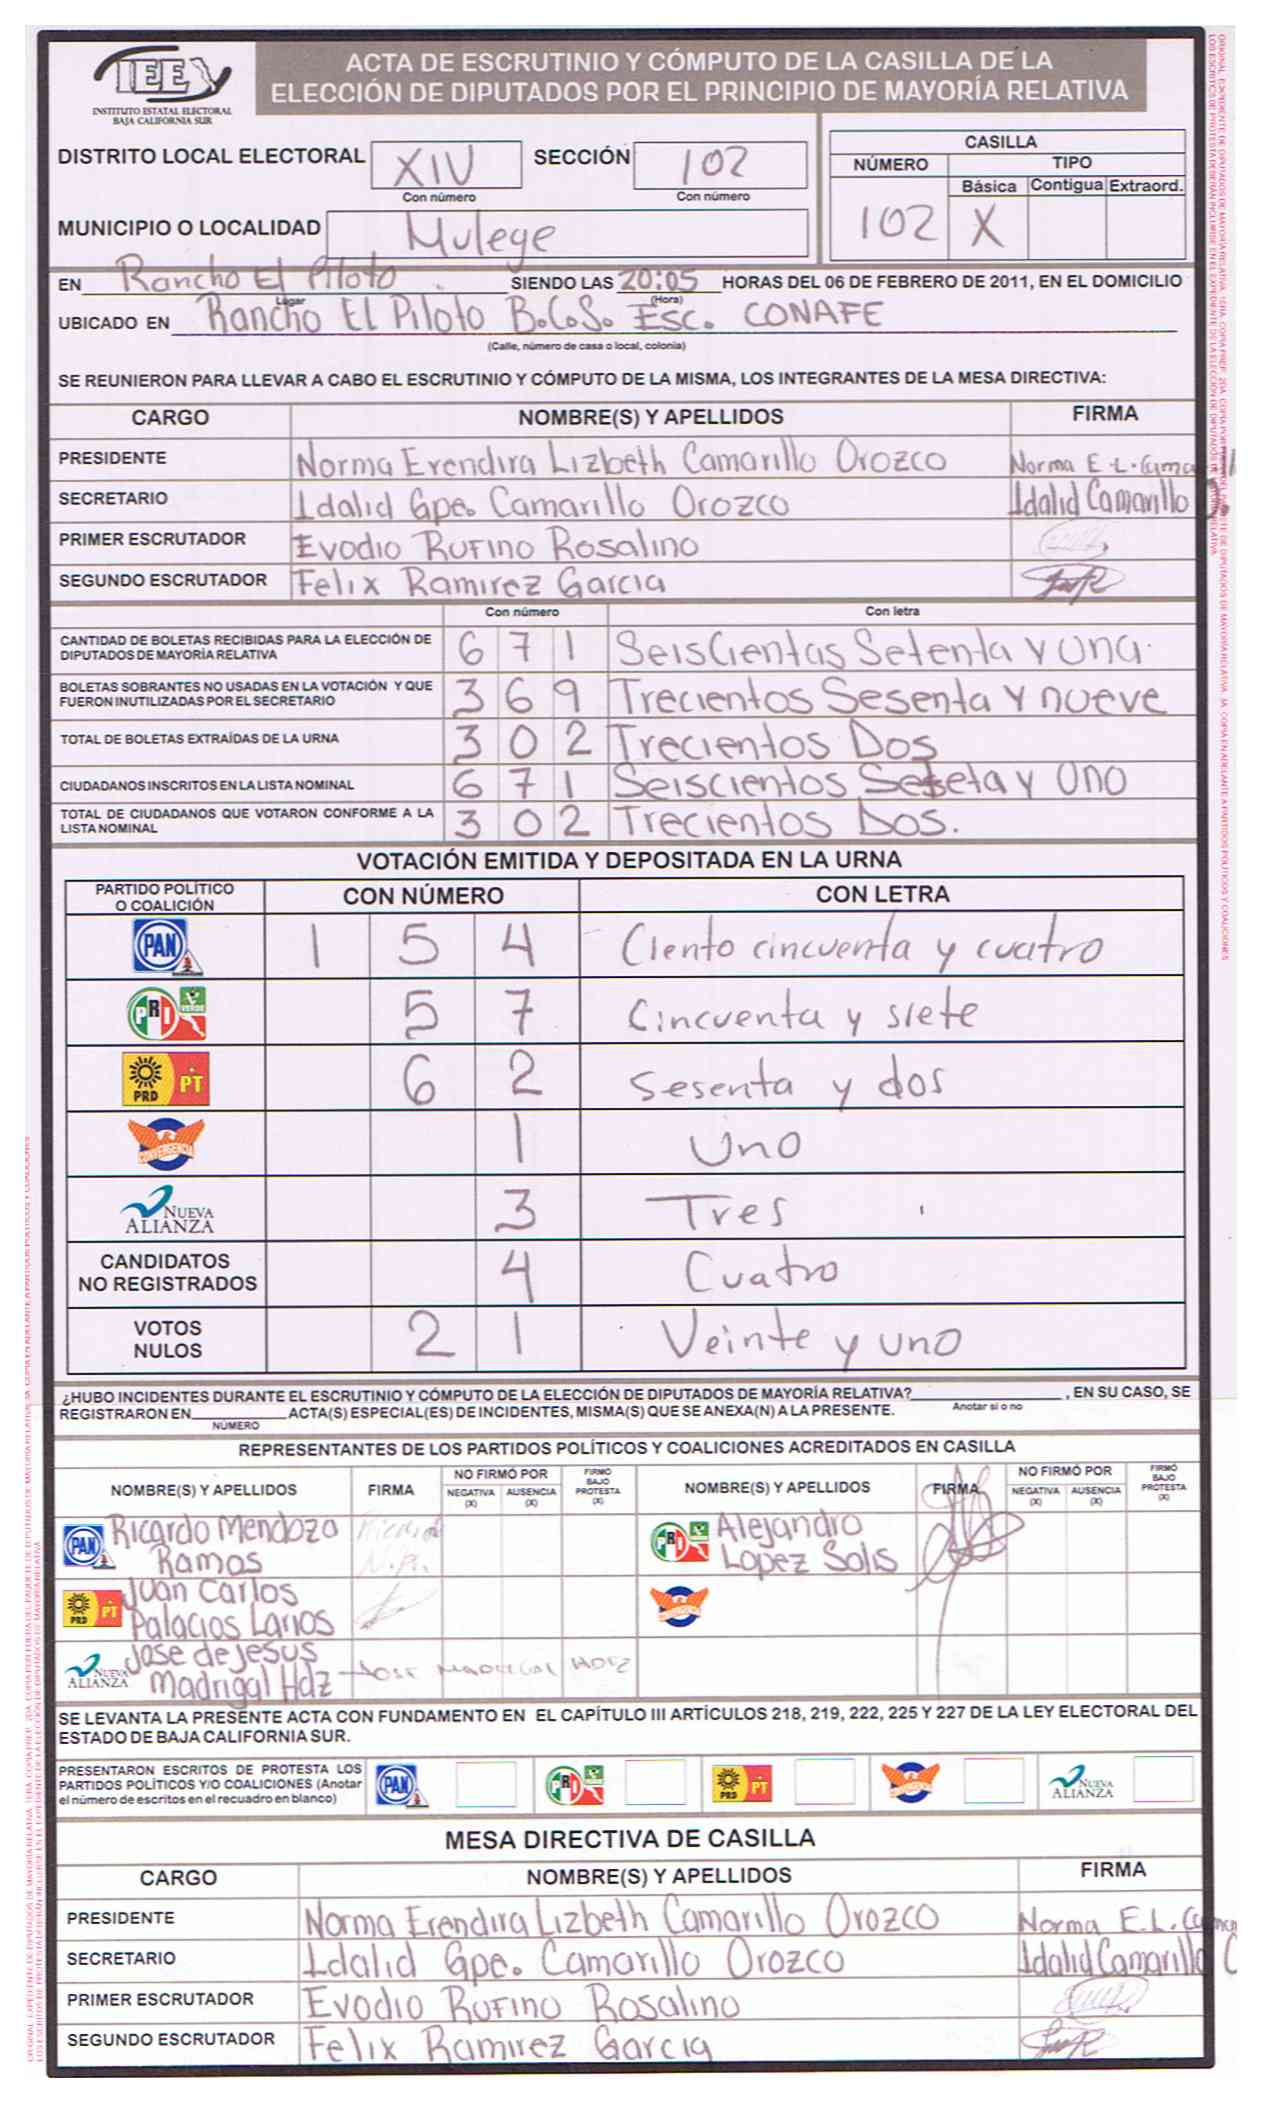 IEE
INSTITUTO ESTATAL ELECTORAL
BAJA CALIFORNIA SUR
ACTA DE ESCRUTINIO Y CÓMPUTO DE LA CASILLA DE LA
ELECCIÓN DE DIPUTADOS POR EL PRINCIPIO DE MAYORÍA RELATIVA
DISTRITO LOCAL ELECTORAL XIV SECCIÓN 102
Con número Con número
MUNICIPIO O LOCALIDAD Mulege
CASILLA
NÚMERO TIPO
Básica Contigua Extraord.
102 X
EN Rancho El Piloto. SIENDO LAS 20:05 HORAS DEL 06 DE FEBRERO DE 2011, EN EL DOMICILIO
Lugar (Hora)
UBICADO EN Rancho El Piloto B.C.S. Esc. CONAFE
(Calle, número de casa o local, colonia)
SE REUNIERON PARA LLEVAR A CABO EL ESCRUTINIO Y CÓMPUTO DE LA MISMA, LOS INTEGRANTES DE LA MESA DIRECTIVA:
CARGO NOMBRE(S) Y APELLIDOS FIRMA
PRESIDENTE Norma Erendira Lizbeth Camarillo Orozco Norma E.L. Cama
SECRETARIO Idalid Gpe. Camarillo Orozco Idalid Camarillo
PRIMER ESCRUTADOR Evodio Rufino Rosalino
SEGUNDO ESCRUTADOR Felix Ramirez Garcia
Con número Con letra
CANTIDAD DE BOLETAS RECIBIDAS PARA LA ELECCIÓN DE
DIPUTADOS DE MAYORÍA RELATIVA 6 7 1 Seiscientas Setenta y una.
BOLETAS SOBRANTES NO USADAS EN LA VOTACIÓN Y QUE
FUERON INUTILIZADAS POR EL SECRETARIO 3 6 9 Trecientos Sesenta y nueve
TOTAL DE BOLETAS EXTRAÍDAS DE LA URNA 3 0 2 Trecientos Dos
CIUDADANOS INSCRITOS EN LA LISTA NOMINAL 6 7 1 Seiscientos Seteta y Uno
TOTAL DE CIUDADANOS QUE VOTARON CONFORME A LA
LISTA NOMINAL 3 0 2 Trecientos Dos.
VOTACIÓN EMITIDA Y DEPOSITADA EN LA URNA
PARTIDO POLÍTICO
O COALICIÓN CON NÚMERO CON LETRA
PAN 1 5 4 Ciento cincuenta y cuatro
PRI VERDE 5 7 Cincuenta y siete
PRD PT 6 2 Sesenta y dos
CONVERGENCIA 1 Uno
NUEVA ALIANZA 3 Tres
CANDIDATOS
NO REGISTRADOS 4 Cuatro
VOTOS
NULOS 2 1 Veinte y uno
¿HUBO INCIDENTES DURANTE EL ESCRUTINIO Y CÓMPUTO DE LA ELECCIÓN DE DIPUTADOS DE MAYORÍA RELATIVA? , EN SU CASO, SE
Anotar si o no
REGISTRARON EN ACTA(S) ESPECIAL(ES) DE INCIDENTES, MISMA(S) QUE SE ANEXA(N) A LA PRESENTE.
NÚMERO
REPRESENTANTES DE LOS PARTIDOS POLÍTICOS Y COALICIONES ACREDITADOS EN CASILLA
NOMBRE(S) Y APELLIDOS FIRMA NO FIRMÓ POR NEGATIVA (X) AUSENCIA (X) FIRMÓ BAJO PROTESTA (X) NOMBRE(S) Y APELLIDOS FIRMA NO FIRMÓ POR NEGATIVA (X) AUSENCIA (X) FIRMÓ BAJO PROTESTA (X)
PAN Ricardo Mendoza
Ramos
PRI Alejandro
Lopez Solis
PRD PT Juan Carlos
Palacios Larios
CONVERGENCIA
NUEVA ALIANZA Jose de Jesus
Madrigal Hdz Jose Madrigal Hdez
SE LEVANTA LA PRESENTE ACTA CON FUNDAMENTO EN EL CAPÍTULO III ARTÍCULOS 218, 219, 222, 225 Y 227 DE LA LEY ELECTORAL DEL
ESTADO DE BAJA CALIFORNIA SUR.
PRESENTARON ESCRITOS DE PROTESTA LOS
PARTIDOS POLÍTICOS Y/O COALICIONES (Anotar
el número de escritos en el recuadro en blanco)
PAN PRI PRD PT CONVERGENCIA NUEVA ALIANZA
MESA DIRECTIVA DE CASILLA
CARGO NOMBRE(S) Y APELLIDOS FIRMA
PRESIDENTE Norma Erendira Lizbeth Camarillo Orozco Norma E.L. Cama
SECRETARIO Idalid Gpe. Camarillo Orozco Idalid Camarillo
PRIMER ESCRUTADOR Evodio Rufino Rosalino
SEGUNDO ESCRUTADOR Felix Ramirez Garcia